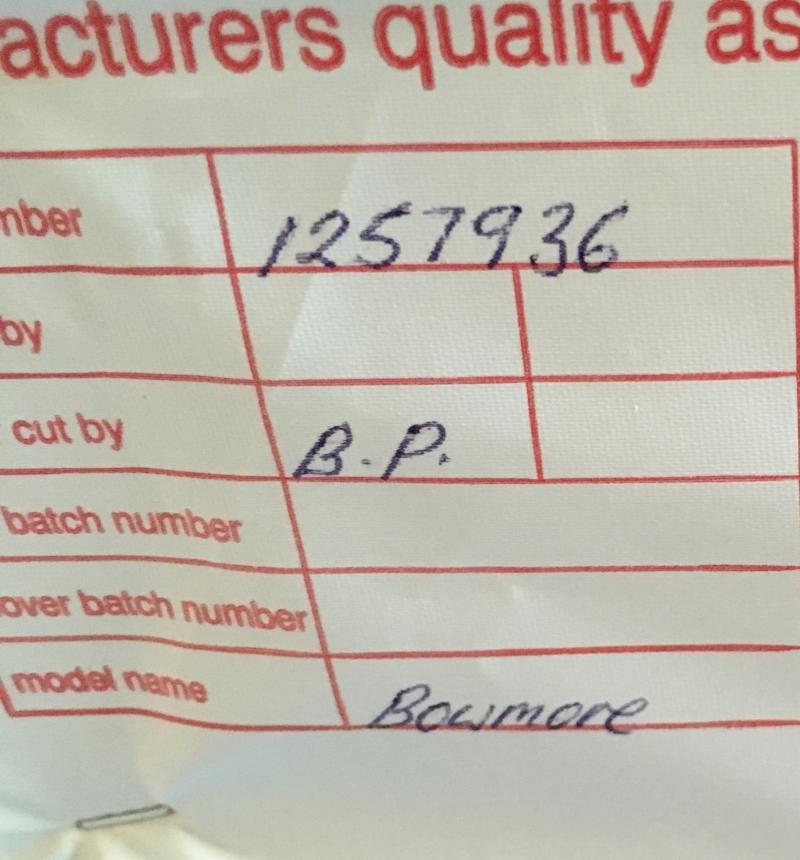 acturers quality as
mber 1257936
by
cut by B.P.
batch number
over batch number
model name Bowmore